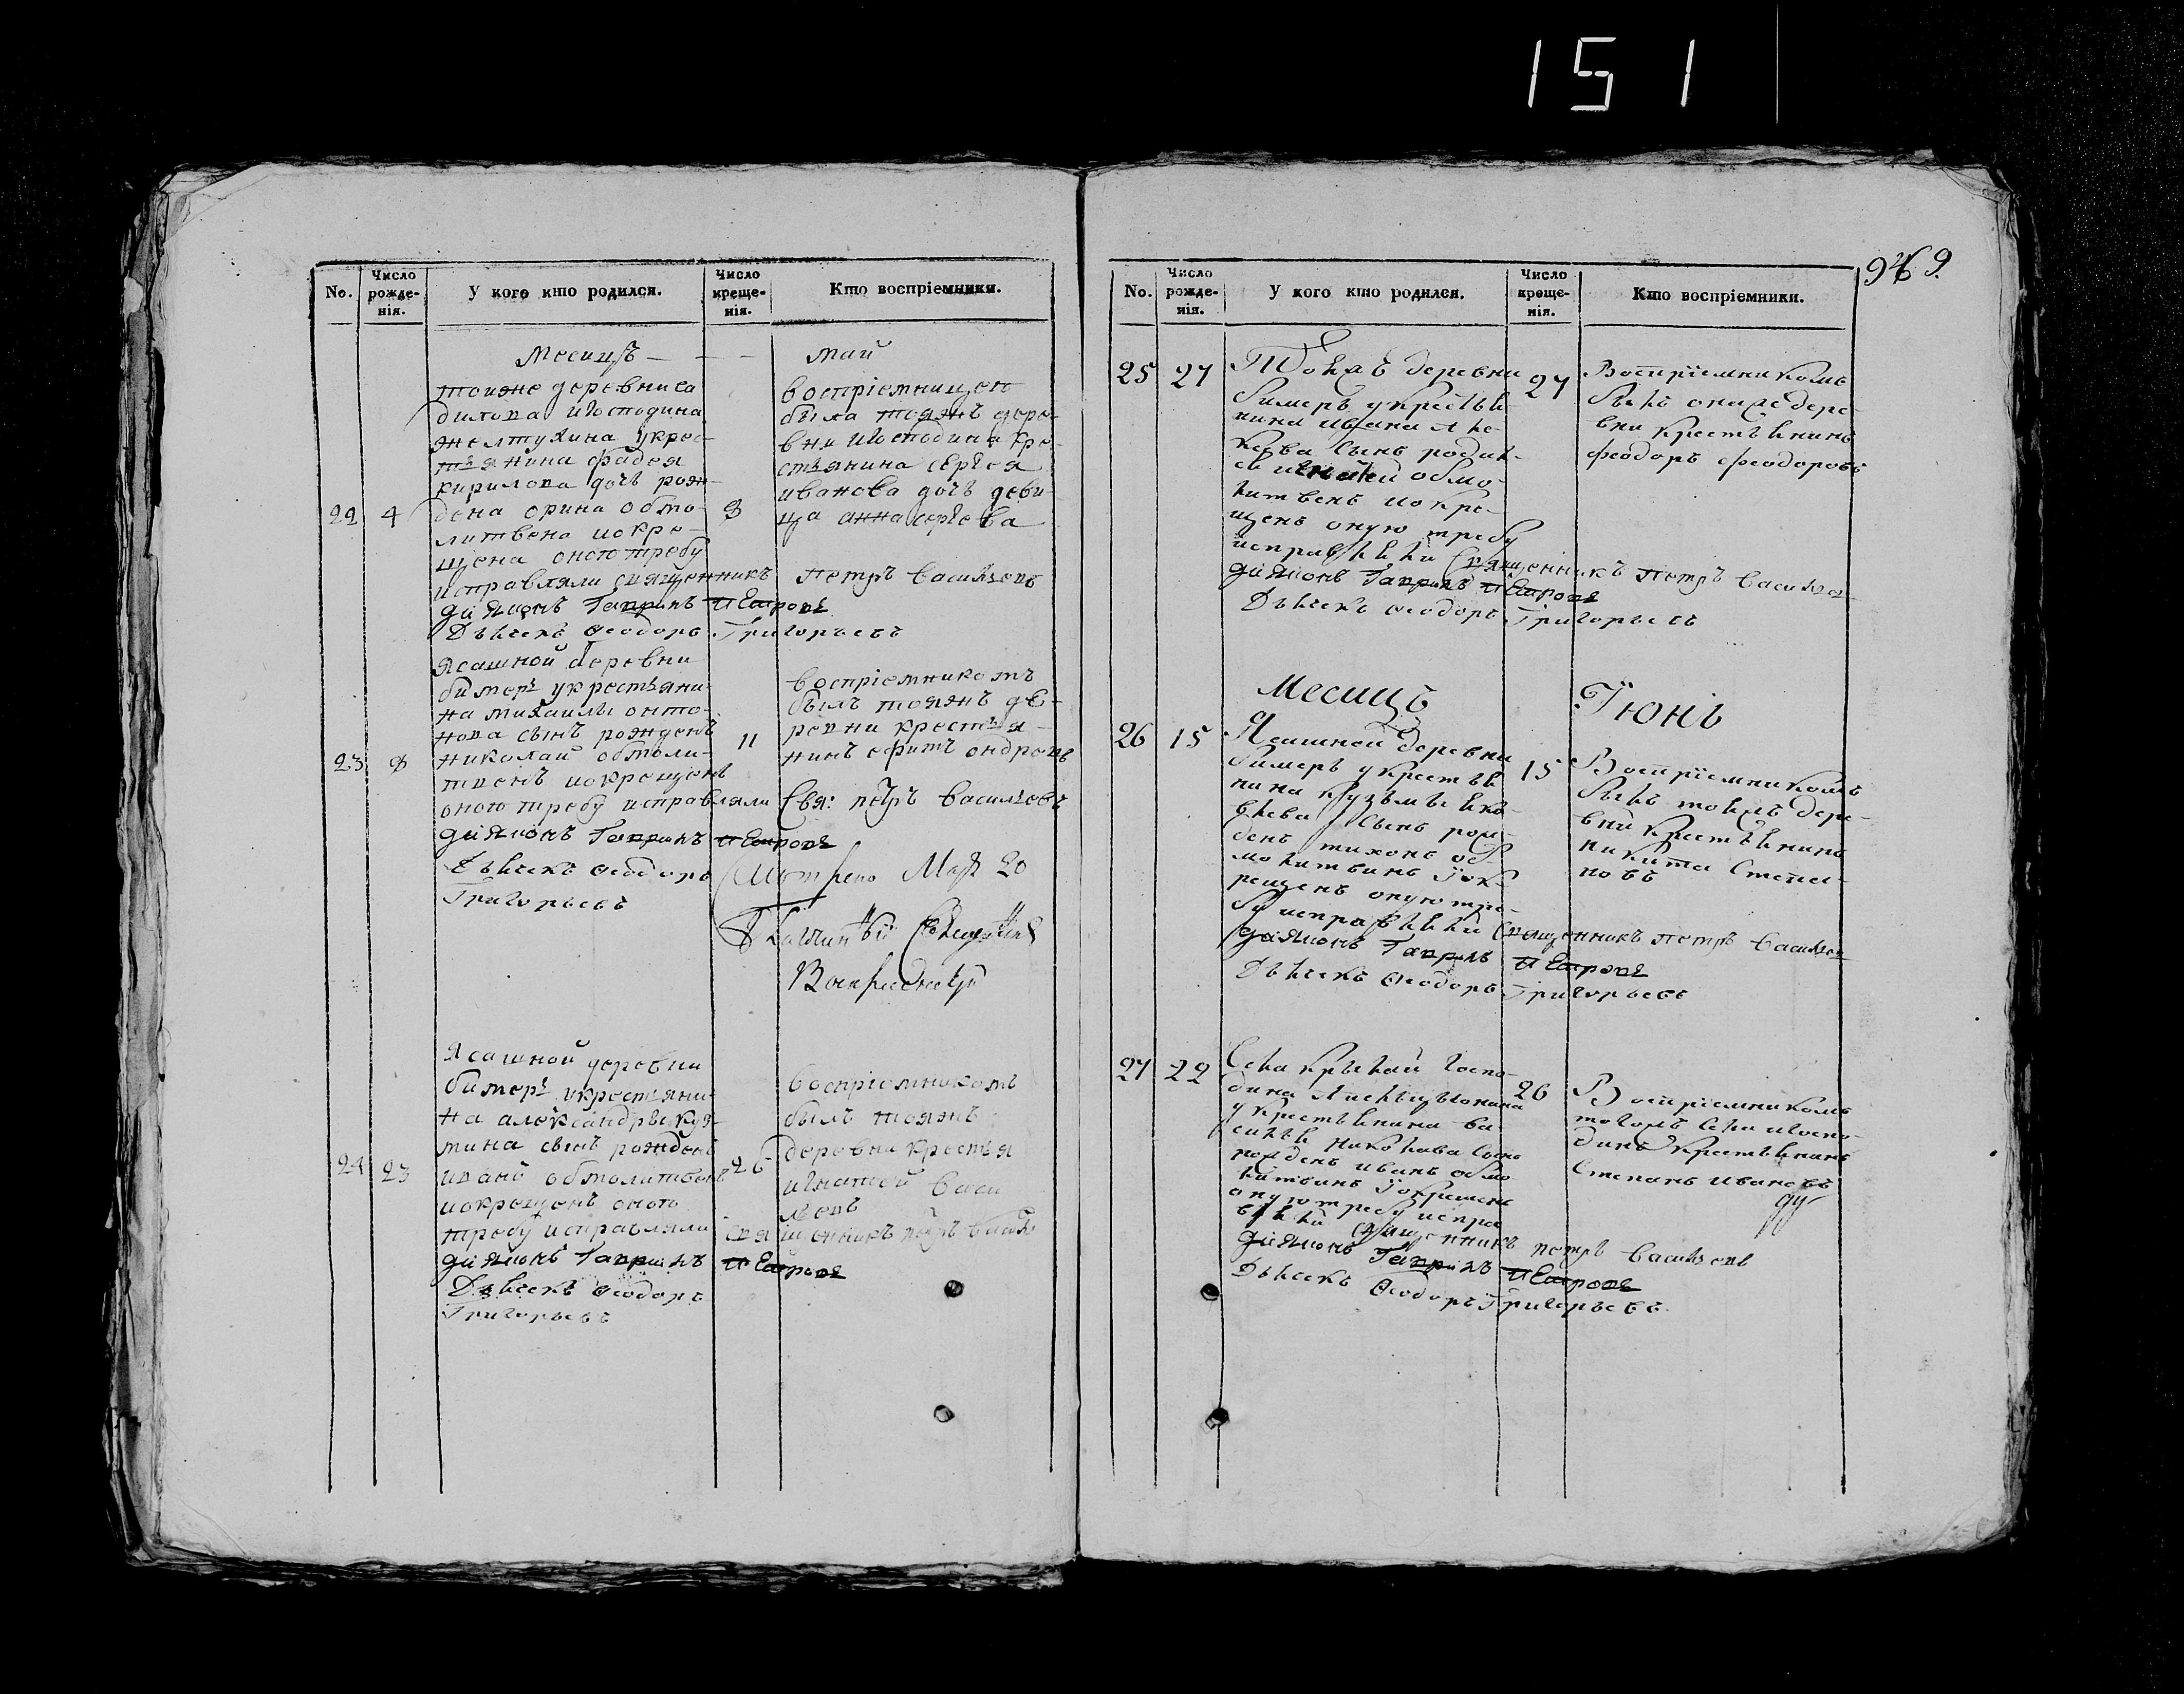 151
969.
No.
Число рожде- нія.
У кого кто родился.
Число креще- нія.
Кто воспріемники.
Месицъ — — — май
тоиже деревни са
дилова игосподина
желтухина укрес-
тьянина фадея
кирилова дочь рож-
22 4 дена орина обмо- 8
литвена иокре-
щена оную требу
исправляли священникъ петръ василѣевъ
діяконъ Гаврилъ Петровъ
Дьячекъ Ѳеодоръ Григорьевъ
воспріемницею
была тояжъ дере-
вни игосподина кре-
стьянина сергея
иванова дочь деви-
ца анна сергѣева
Ясашной деревни
бимеръ укрестьяни-
на михаилы онто-
нова сынъ рожденъ
23 8 николай обмоли- 11
твенъ иокрещенъ
оною требу исправляли Свя: петръ Васильевъ
діяконъ Гаврилъ Петровъ
Дьячекъ Ѳеодоръ
Григорьевъ
воспріемникомъ
былъ тояжъ де-
ревни крестья-
нинъ ефимъ ондреевъ
Смотрено Мая 20
Ясашной деревни
бимеръ укрестьяни-
на александры куз-
мина сынъ рожденъ
24 23 иванъ обмолитвенъ 26
иокрещенъ оною
требу исправляли священникъ петръ
діяконъ Гаврилъ Петровъ
Дьячекъ Ѳеодоръ
Григорьевъ
воспріемникомъ
былъ тояжъ
деревни крестья
игнатей васи
левъ
No.
Число рожде- нія.
У кого кто родился.
Число креще- нія.
Кто воспріемники.
25 27 деревни 27
бимеръ укрестья
нина ивана
сынъ родил-
ся обмо-
литвенъ иокре-
щенъ оную требу
исправляли Священникъ петръ василѣев
діяконъ Гаврилъ Петровъ
Дьячекъ Ѳеодоръ Григорьевъ
Воспріемникомъ
былъ оной же дере-
вни крестьянинъ
феодоръ феодоровъ
Месицъ Іюнь
26 15 Ясашной деревни 15
бимеръ укрестья
нина кузьмы яко-
влева сынъ рож-
денъ тихонъ об-
молитвинъ Іок-
рещенъ оную тре-
бу исправляли Священникъ петръ василѣев
діяконъ Гаврилъ Петровъ
Дьячекъ Ѳеодоръ Григорьевъ
Воспріемникомъ
былъ тоежъ дере-
вни крестьянинъ
никита Степа-
новъ
27 22 Села госпо- 26
дина
укрестьянина ва-
силья николаева сынъ
рожденъ иванъ обмо
литвинъ Іокрещенъ
оную требу испра
вляли священникъ петръ василѣевъ
діяконъ Гаврилъ Петровъ
Дьячекъ Ѳеодоръ Григорьевъ
Воспріемникомъ
тогожъ села игоспо-
дина крестьянинъ
Степанъ ивановъ